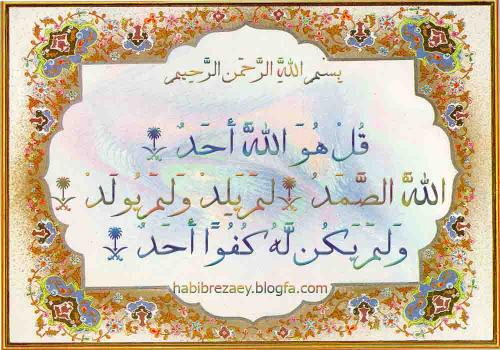 بِسْمِ اللَّهِ الرَّحْمَنِ الرَّحِيمِ
قُلْ هُوَ اللَّهُ أَحَدٌ
اللَّهُ الصَّمَدُ لَمْ يَلِدْ وَلَمْ يُولَدْ
وَلَمْ يَكُن لَّهُ كُفُوًا أَحَدٌ
habibrezaey.blogfa.com